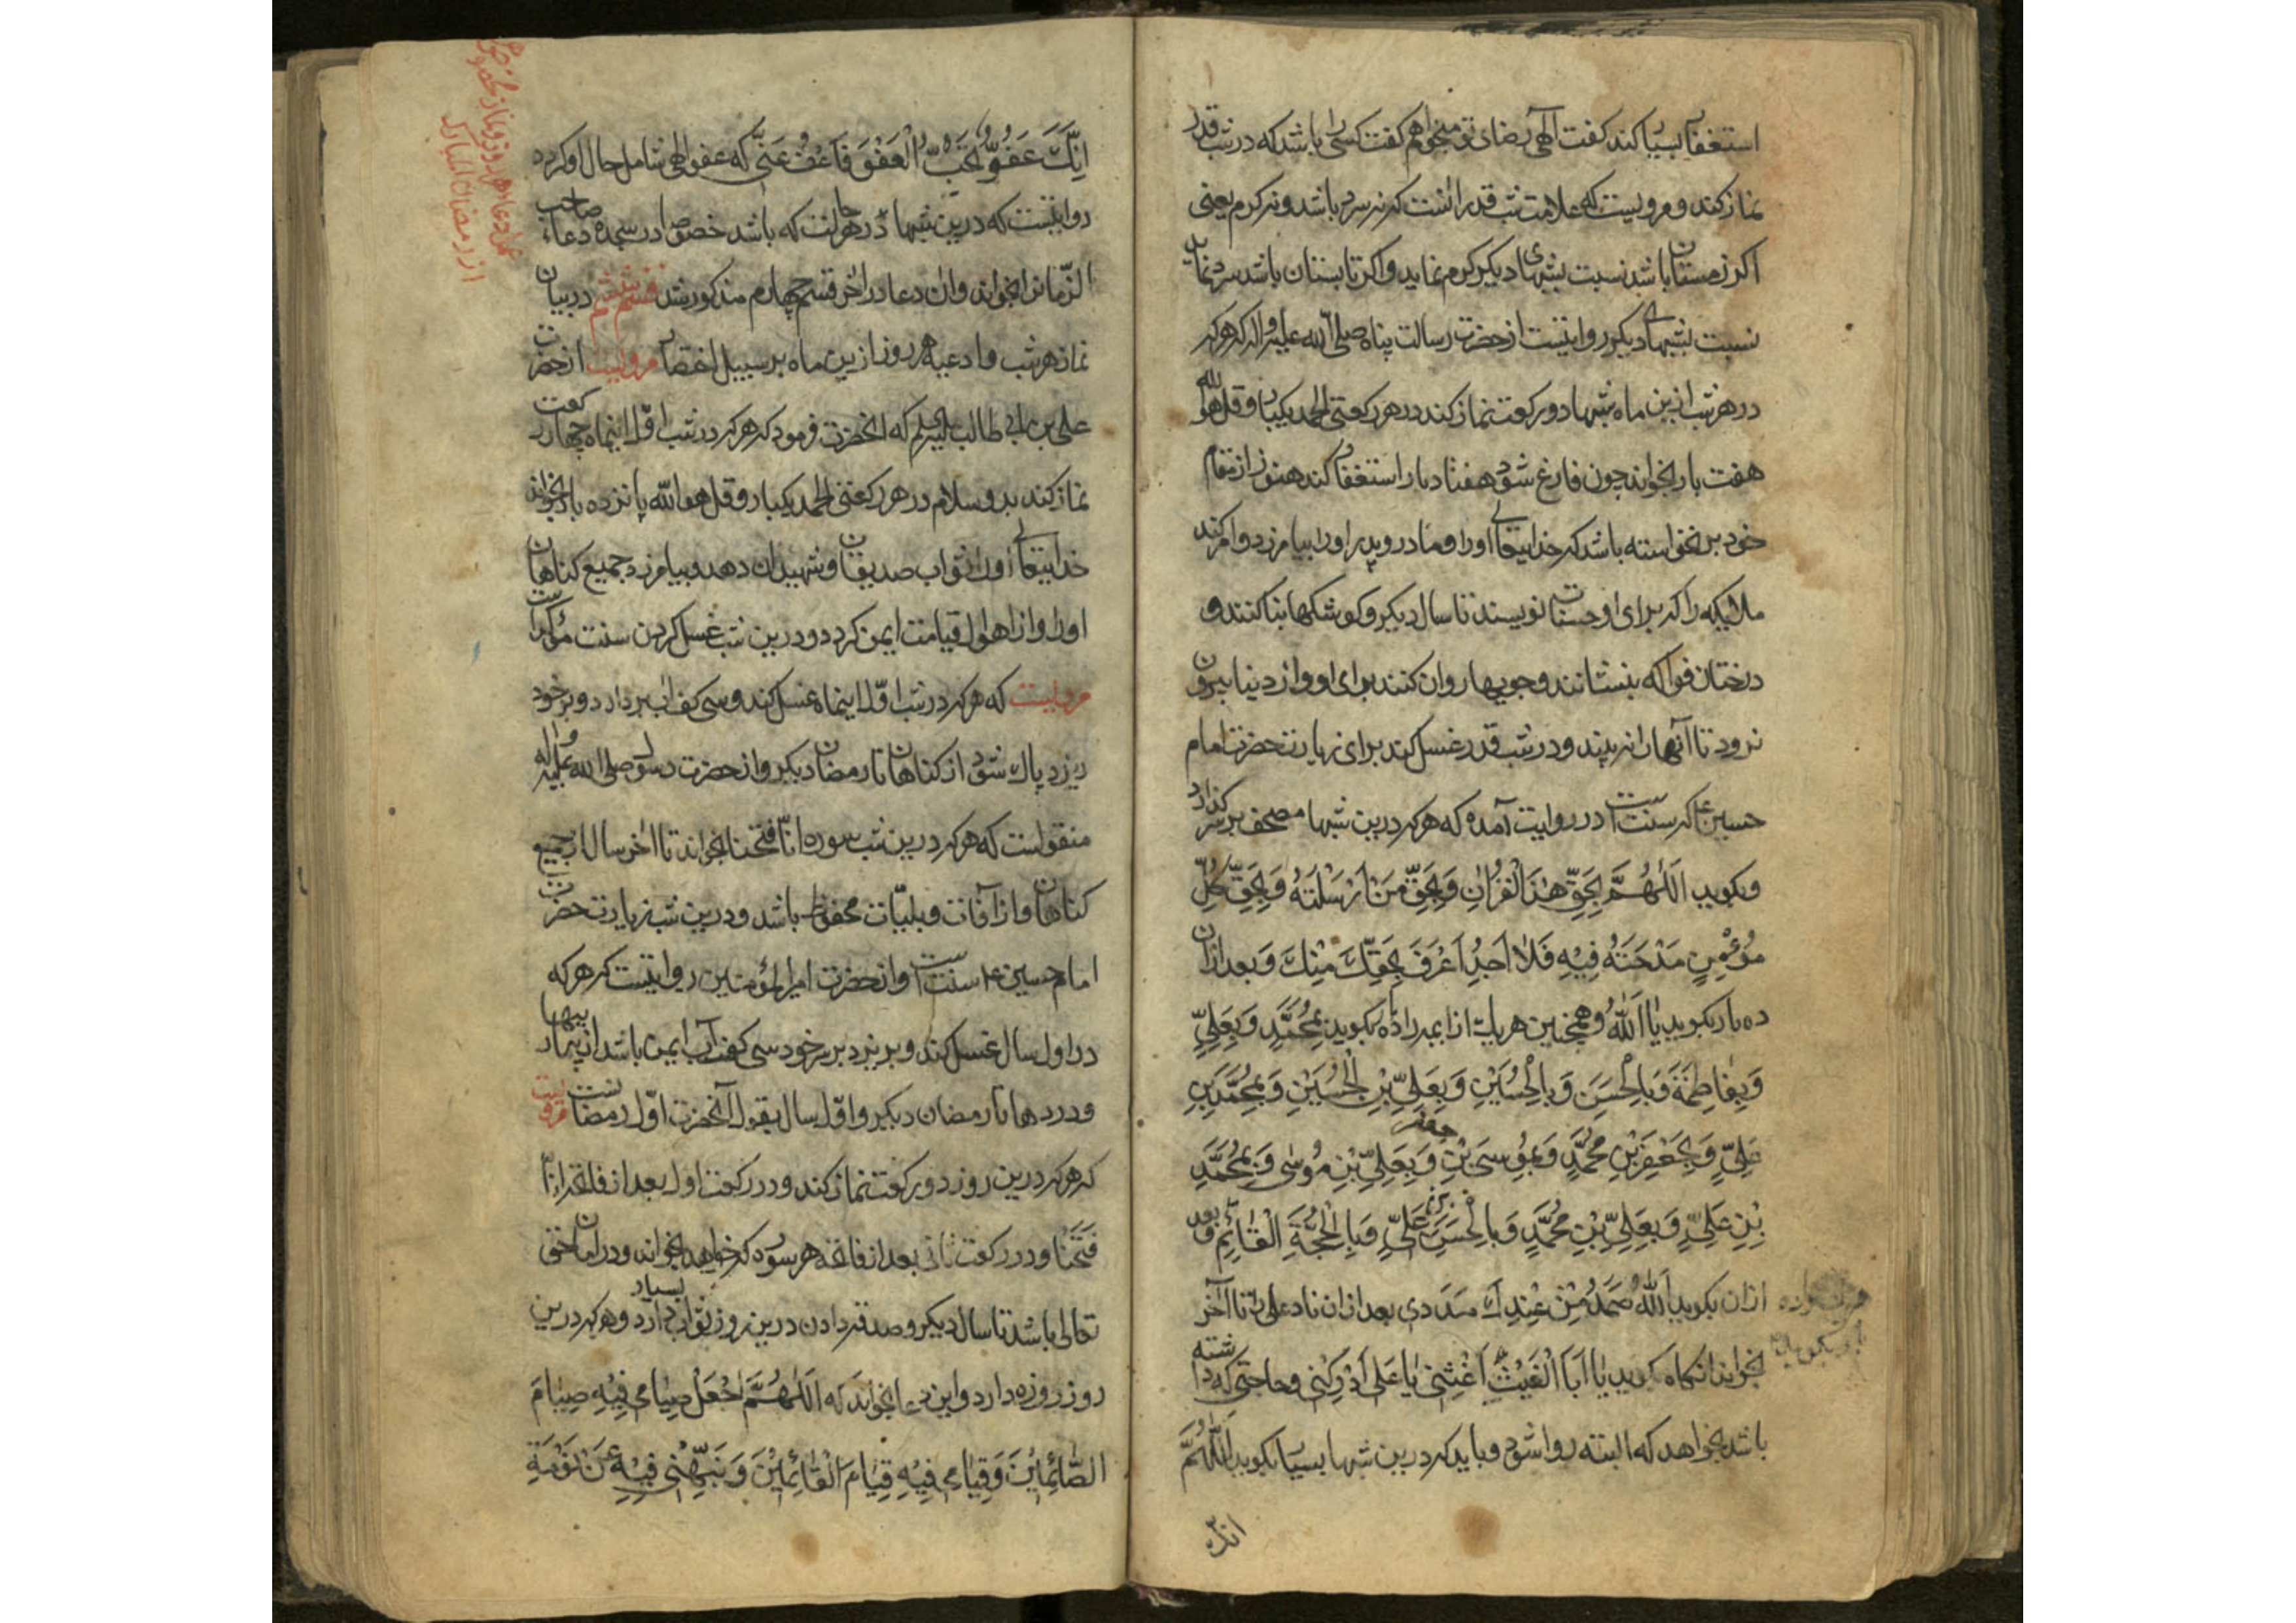 استغفار بسیار کند کفت الهی رضای تو میخواهم کفت کسی را باشد که در شب قدر
نماز کند و مرویست که علامت شب قدر انست که نه سرد باشد و نه کرم یعنی
اکر زمستان باشد نسبت بشبهای دیکر کرم نماید و اکر تابستان باشد سرد نماید
نسبت بشبهای دیکر روایتست از حضرت رسالت پناه صلی الله علیه و اله که هر که
در هر شب ازین ماه شبها دو رکعت نماز کند در هر رکعتی الحمد یکبار و قل هو الله
هفت بار بخواند چون فارغ شود هفتاد بار استغفار کند هنوز از مقام
خود بر نخواسته باشد که خدایتعالی او را و مادر و پدر او را بیامرزد و امر کند
ملائیکه را که برای او حسنات نویسند تا سال دیکر و کوشکها بنا کنند و
درختان فواکه بنشانند و جویها روان کنند برای او و از دنیا بیرون
نرود تا آنها را نه بیند و در شب قدر غسل کند برای زیارت حضرت امام
حسین ع که سنت است در روایت آمده که هر که درین شبها مصحف بر سر کذارد
و بکوید اَللّٰهُمَّ بِحَقِّ هٰذَا الْقُرْاٰنِ وَ بِحَقِّ مَنْ اَرْسَلْتَهُ وَ بِحَقِّ كُلِّ
مُؤْمِنٍ مَدَحْتَهُ فِيْهِ فَلَا اَحَدُ اَعْرَفَ بِحَقِّكَ مِنْكَ و بعد ازان
ده بار بکوید یا اَللّٰهُ و همچنین هر یک از ایمه را ده بار بکوید بِمُحَمَّدٍ وَ بِعَلِيٍّ
وَ بِفَاطِمَةَ وَ بِالْحَسَنِ وَ بِالْحُسَيْنِ وَ بِعَلِيِّ بْنِ الْحُسَيْنِ وَ بِمُحَمَّدِ بْنِ
عَلِيٍّ وَ بِجَعْفَرِ بْنِ مُحَمَّدٍ وَ بِمُوسَى بْنِ جعفر وَ بِعَلِيِّ بْنِ مُوسٰى وَ بِمُحَمَّدِ
بْنِ عَلِيٍّ وَ بِعَلِيِّ بْنِ مُحَمَّدٍ وَ بِالْحَسَنِ بْنِ عَلِيٍّ وَ بِالْحُجَّةِ الْقَائِمِ و بعد
ازان بکوید اَللّٰهُ صَمَدُ مِنْ عِنْدِكَ مَدَدی بعد ازان ناد علی را تا آخر
بخواند انکاه کوید یا اَبَا الْغَيْثِ اَغِثْنِي يا عَلي اَدْرِكْنِي و حاجتی که داشته
باشد بخواهد که البته روا شود و باید که درین شبها بسیار بکوید اَللّٰهُمَّ
انک
اِنَّكَ عَفُوٌّ تُحِبُّ الْعَفْوَ فَاعْفُ عَنِّي که عفو الهی شامل حال او کردد
روایتست که درین شبها در هر حالت که باشد خصوصا در سجده دعاء صاحب
الزمانرا بخواند و ان دعا در اخر قسم چهارم مذکور شد قسم ششم در بیان
نماز هر شب و ادعیه هر روز ازین ماه بر سبیل اختصار مرویست از حضرت
علی بن ابی طالب علیه السلم که انحضرت فرمود که هر که در شب اول اینماه چهار رکعت
نماز کند بدو سلام در هر رکعتی الحمد یکبار و قل هو الله پانزده بار بخواند
خدایتعالی او را ثواب صدیقان و شهیدان دهد و بیامرزد جمیع کناهان
او را و از اهوال قیامت ایمن کردد و درین شب غسل کردن سنت مؤکد است
مرویست که هر که در شب اول اینماه غسل کند و سی کف اب بردارد و بر خود
ریزد پاک شود از کناهان تا رمضان دیکر و از حضرت رسول صلی الله علیه و اله
منقولست که هر که درین شب سوره انا فتحنا بخواند تا اخر سال از جمیع
کناهان و از آفات و بلیات محفوظ باشد و درین شب زیارت حضرت
امام حسین ع سنت است و از حضرت امیر المؤمنین روایتست که هر که
در اول سال غسل کند و بریزد بر سر خود سی کف آب ایمن باشد از بیماریها
و دردها تا رمضان دیکر و اول سال بقول آنحضرت اول رمضانست مرویست
که هر که درین روز دو رکعت نماز کند و در رکعت اول بعد از فاتحه انا
فَتَحْنَا و در رکعت ثانی بعد از فاتحه هر سوره که خواهد بخواند در امان حق
تعالی باشد تا سال دیکر و صدقه دادن درین روز ثواب بسیار دارد و هر که درین
روز روزه دارد و این دعا بخواند که اَللّٰهُمَّ اجْعَلْ صِيَامِي فِيْهِ صِيَامَ
الصَّائِمِيْنَ وَ قِيَامِي فِيْهِ قِيَامَ الْقَائِمِيْنَ وَ نَبِّهْنِي فِيْهِ عَنْ نَوْمَةِ